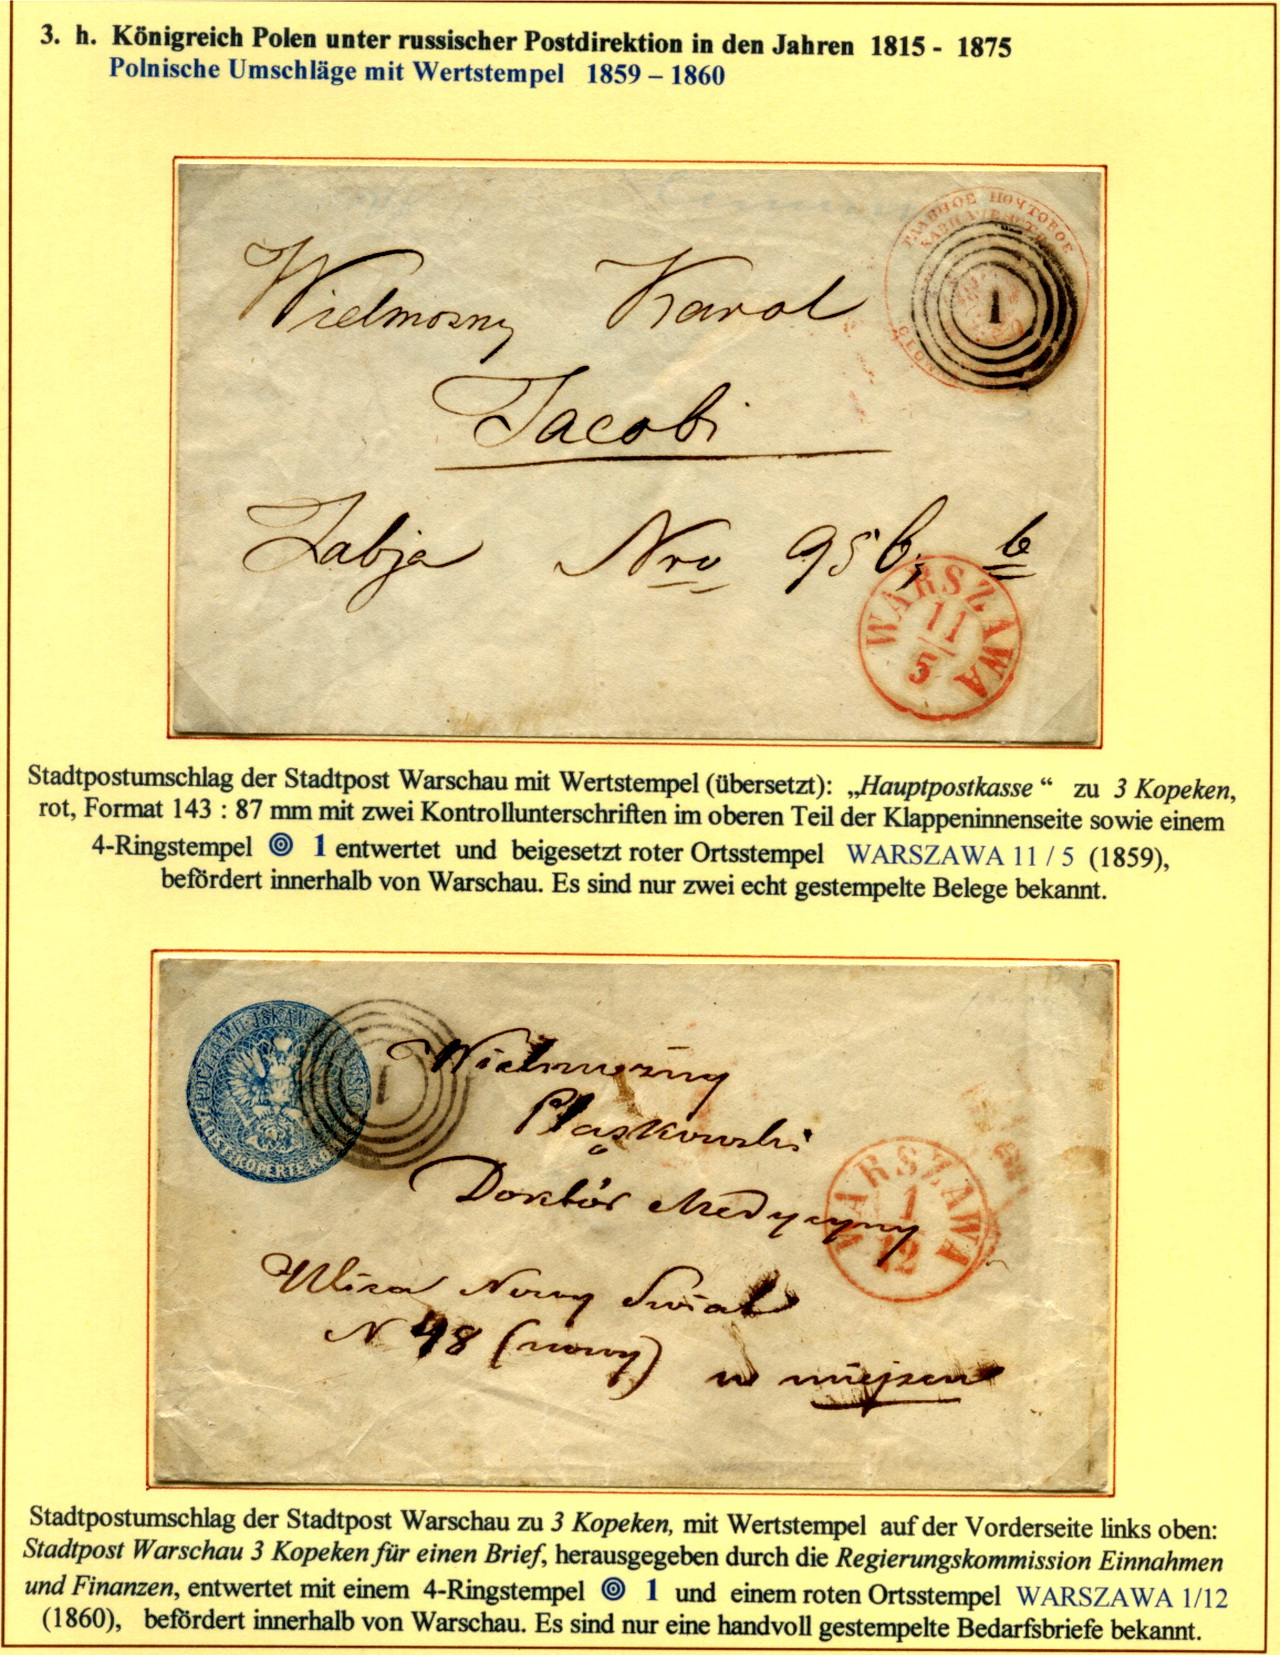 3. h. Königreich Polen unter russischer Postdirektion in den Jahren 1815 - 1875
Polnische Umschläge mit Wertstempel 1859 – 1860
ГЛАВНОЕ ПОЧТОВОЕ
1
Wielmozny Karol
Jacobi
Zabja Nro 956, b
WARSZAWA
11
5
Stadtpostumschlag der Stadtpost Warschau mit Wertstempel (übersetzt): „Hauptpostkasse“ zu 3 Kopeken,
rot, Format 143 : 87 mm mit zwei Kontrollunterschriften im oberen Teil der Klappeninnenseite sowie einem
4-Ringstempel 1 entwertet und beigesetzt roter Ortsstempel WARSZAWA 11 / 5 (1859),
befördert innerhalb von Warschau. Es sind nur zwei echt gestempelte Belege bekannt.
POCZTA MIEJSKA
KOPERTE
1
Wielmozny
Pląskowski
Doktór Medycyny
Ulica Nowy Swiat
N 48 (nowy)
w miejscu
WARSZAWA
1
12
Stadtpostumschlag der Stadtpost Warschau zu 3 Kopeken, mit Wertstempel auf der Vorderseite links oben:
Stadtpost Warschau 3 Kopeken für einen Brief, herausgegeben durch die Regierungskommission Einnahmen
und Finanzen, entwertet mit einem 4-Ringstempel 1 und einem roten Ortsstempel WARSZAWA 1/12
(1860), befördert innerhalb von Warschau. Es sind nur eine handvoll gestempelte Bedarfsbriefe bekannt.